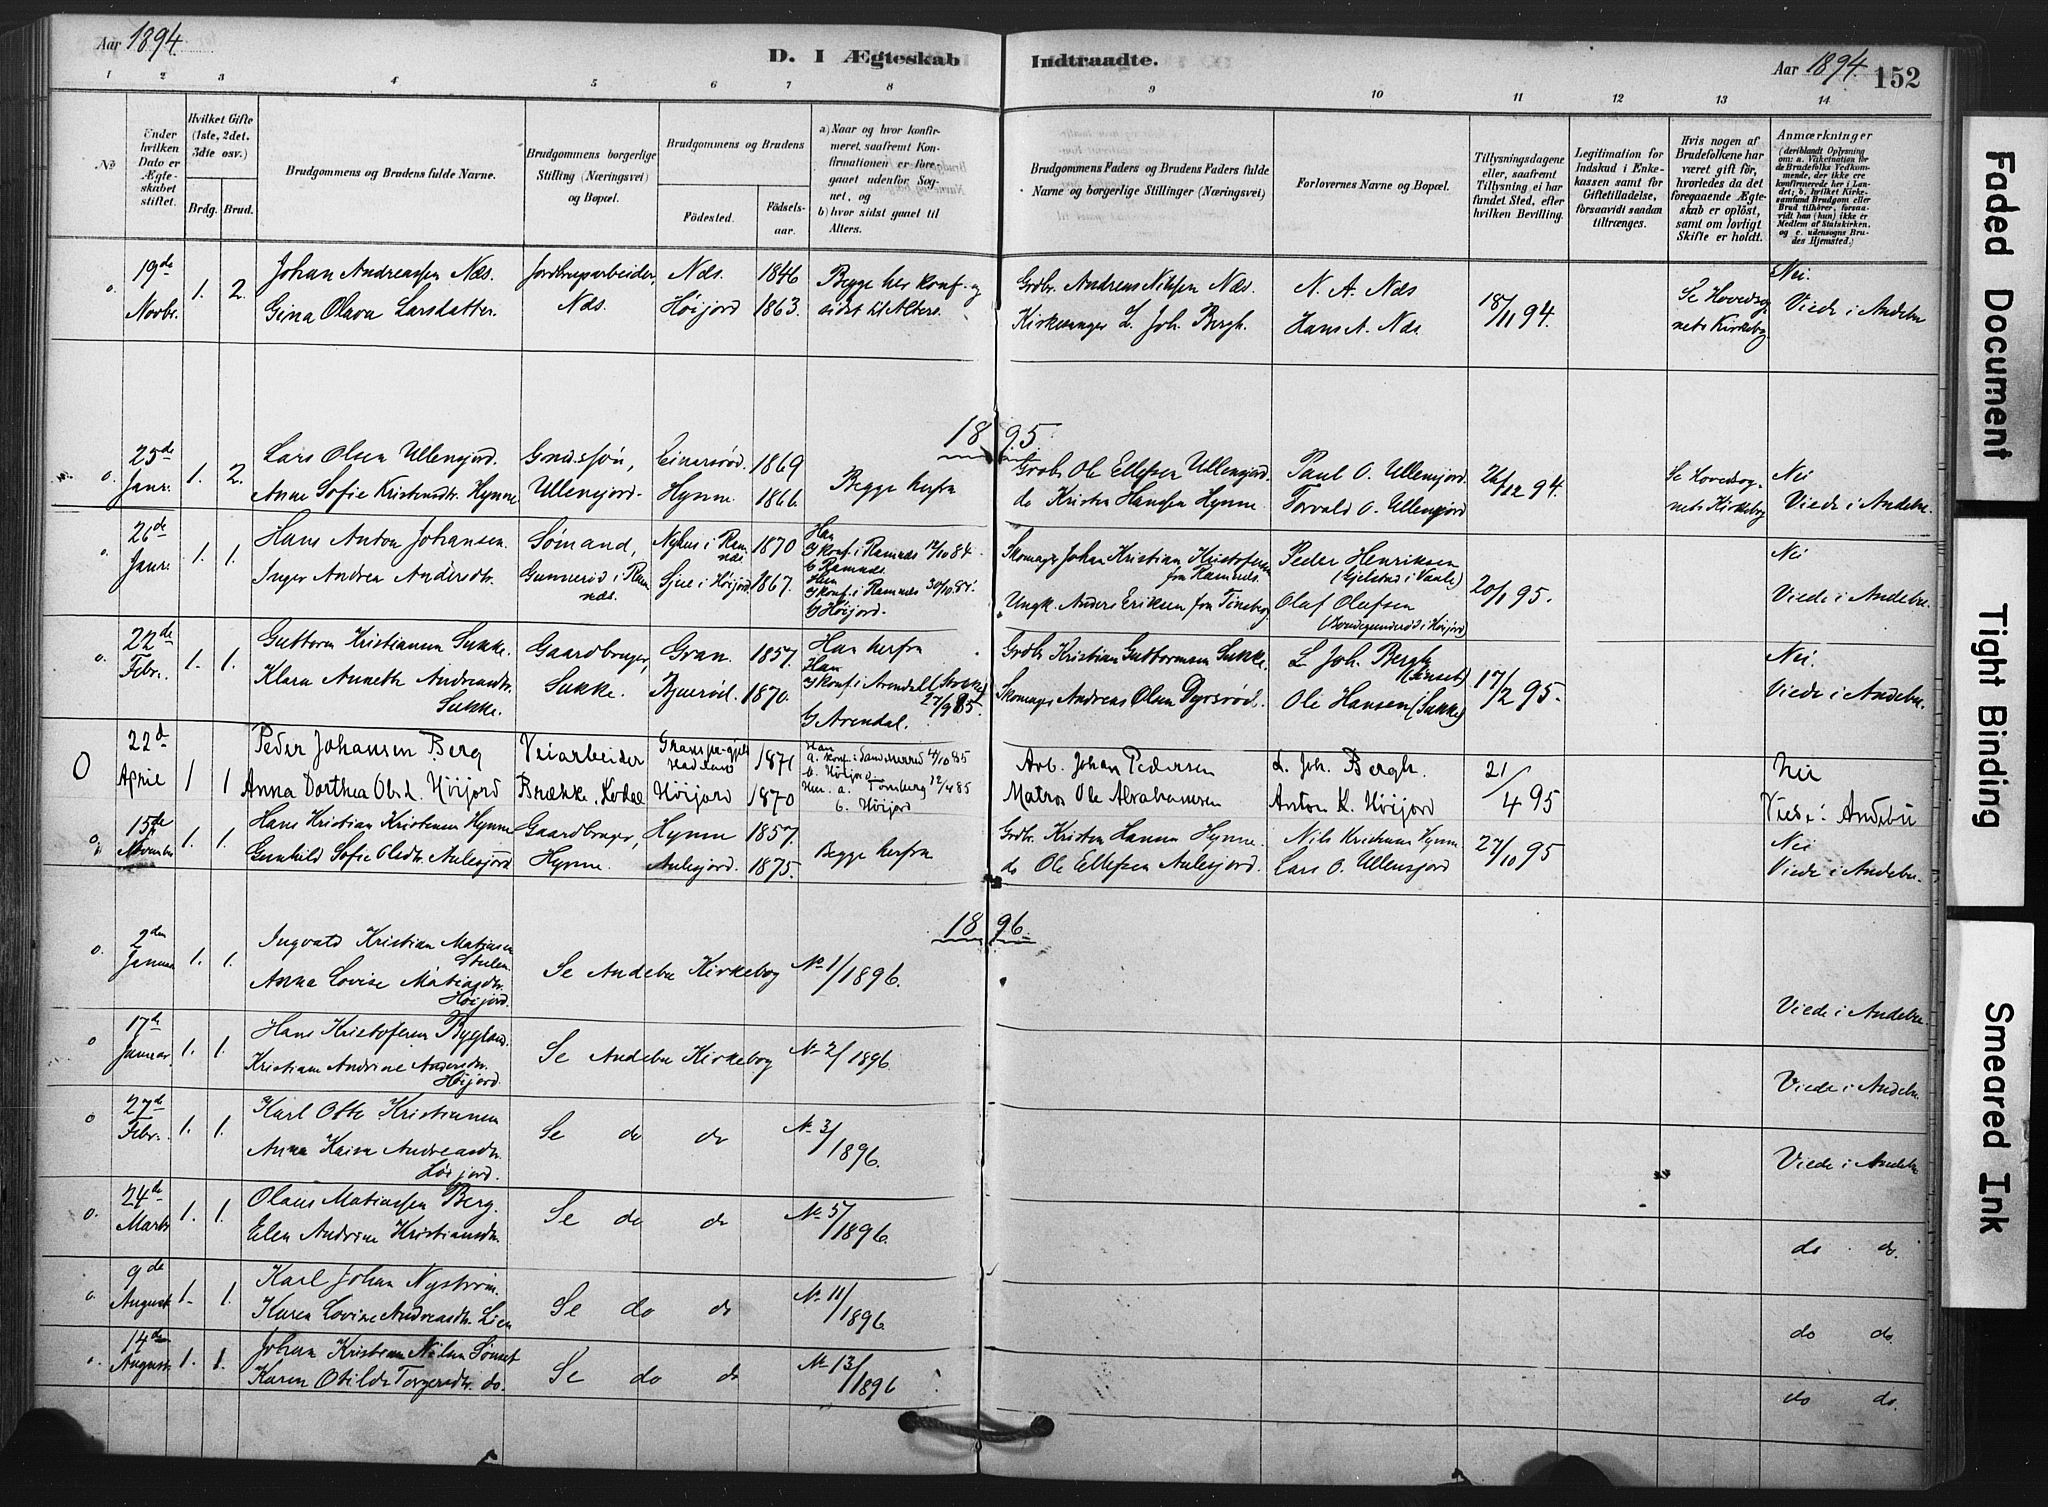 Aar 1894.
D. I Ægteskab Indtraadte.
Aar 1894.
152
1 2 3 4 5 6 7 8 9 10 11 12 13 14
No
Under hvilken Dato er Ægteskabet stiftet.
Hvilket Gifte (1ste, 2det, 3die osv.)
Brdg. Brud.
Brudgommens og Brudens fulde Navne.
Brudgommens borgerlige Stilling (Næringsvei) og Bopæl.
Brudgommens og Brudens
Födested.
Födselsaar.
a) Naar og hvor konfirmeret, saafremt Konfirmationen er foregaaet udenfor Sognet, og
b) hvor sidst gaaet til Alters.
Brudgommens Faders og Brudens Faders fulde Navne og borgerlige Stillinger (Næringsvei)
Forlovernes Navne og Bopæl.
Tillysningsdagene eller, saafremt Tillysning ei har fundet Sted, efter hvilken Bevilling.
Legitimation for Indskud i Enkekassen samt for Giftetilladelse, forsaavidt saadan tiltrænges.
Hvis nogen af Brudefolkene har været gift för, hvorledes da det foregaaende Ægteskab er oplöst, samt om lovligt Skifte er holdt.
Anmærkninger
(deriblandt Oplysning om: a. Vaccination for de Brudefolks Vedkommende, der ikke ere konfirmerede her i Landet; b. hvilket Kirkesamfund Brudgom eller Brud tilhörer, forsaavidt han (hun) ikke er Medlem af Statskirken, og c. udensogns Brudes Hjemsted.)
o. 19de Novbr. 1. 2. Johan Andreassen Næs. Jordbrugsarbeider, Næs. 1846 Begge her konf. og Grdbr. Andreas Nilsen Næs. N. A. Næs 18/11 94. Se Hovedsog- Nei.
Gina Olava Larsdatter. Næs. Höijord 1863. sidst til Alters. Kirkesanger L. Joh. Bergh. Hans A. Næs. nets Kirkebog Viede i Andebu
1895.
o. 25de Janr. 1. 2. Lars Olsen Ullensjord. Gaardssön, Einersröd. 1869 Begge herfra Grdbr. Ole Ellefsen Ullensjord. Paul O. Ullensjord 26/12 94. Se Hovedsog- Nei
Anne Sofie Kristensdtr. Hynne Ullensjord. Hynne. 1866. do Kristen Hansen Hynne. Torvald O. Ullensjord nets Kirkebog Viede i Andebu.
o. 26de Janr. 1. 1. Hans Anton Johansen. Sömand, Nyhus i Ramnæs. 1870 Han konf. i Ramnæs 12/10 84. Ramnæs. Skomager Johan Kristian Kristofersen fra Ramnæs. Peder Henriksen (Gjelstad i Vaale) 20/1 95. Nei
Inger Andrea Andersdtr. Gunneröd i Ramnæs. Sjue i Höijord 1867. Hun konf. i Ramnæs 30/10 81. Höijord. Ungk. Anders Eriksen fra Tönsberg Olaf Olafsen (Bondegunderöd i Höijord) Viede i Andebu.
o. 22de Febr. 1. 1. Guttorm Kristiansen Sukke. Gaardbruger, Gran. 1857. Han herfra Grdbr. Kristian Guttormsen Sukke. L. Joh. Bergh 17/2 95. Nei.
Klara Annette Andreasdtr. Sukke. Sukke. 1870. konf. i Arendal 27/9 85. Arendal. Skomager Andreas Olsen Dyrsröd. Ole Hansen (Sukke) Viede i Andebu.
O 22d April 1 1 Peder Johansen Berg Veiarbeider 1871 Han a. konf. i Sandeherred 4/10 85 b. Höijord Arb. Johan Pedersen L. Joh. Bergh. 21/4 95 Nei
Anna Dorthea Olsd. Höijord Brække, Kodal Höijord 1870 Hun. a. Tönsberg 12/4 85 b. Höijord Matros Ole Abrahamsen Anton K. Höijord Viede i Andebu
o 15de Novmber 1. 1. Hans Kristian Kristensen Hynne Gaardbruger, Hynne 1857. Begge herfra Grdbr. Kristen Hansen Hynne. Nils Kristensen Hynne 27/10 95 Nei
Gunhild Sofie Olsdtr. Aulesjord. Hynne. Aulesjord. 1875. do Ole Ellefsen Aulesjord. Lars O. Ullensjord Viede i Andebu.
1896.
o. 2den Januar 1. 1. Ingvald Kristian Matiasen Stulen. Se Andebu Kirkebog No 1/1896.
Anna Lovise Matiasdtr. Höijord. Viede i Andebu.
o 17de Januar. 1. 1. Hans Kristofersen Bygland. Se Andebu Kirkebog No 2/1896.
Kristiane Andrine Andersdtr. Höijord. Viede i Andebu.
o 27de Febr. 1. 1. Karl Otto Kristiansen Se do do No 3/1896.
Anna Kaisa Andreasdtr. Höijord. Viede i Andebu
o. 24de Marts 1. 1. Olaus Matiassen Berg. Se do do No 5/1896.
Elen Andrine Kristiansdtr. do do.
o. 9de August 1. 1. Karl Johan Nyström. Se do do No 11/1896.
Karen Lovise Andreasdtr. Lien do do.
o. 14de August. 1. 1. Johan Kristian Nilsen Sönset Se do do No 13/1896
Karen Otilde Torgersdtr. do. do do.
Faded Document
Tight Binding
Smeared Ink